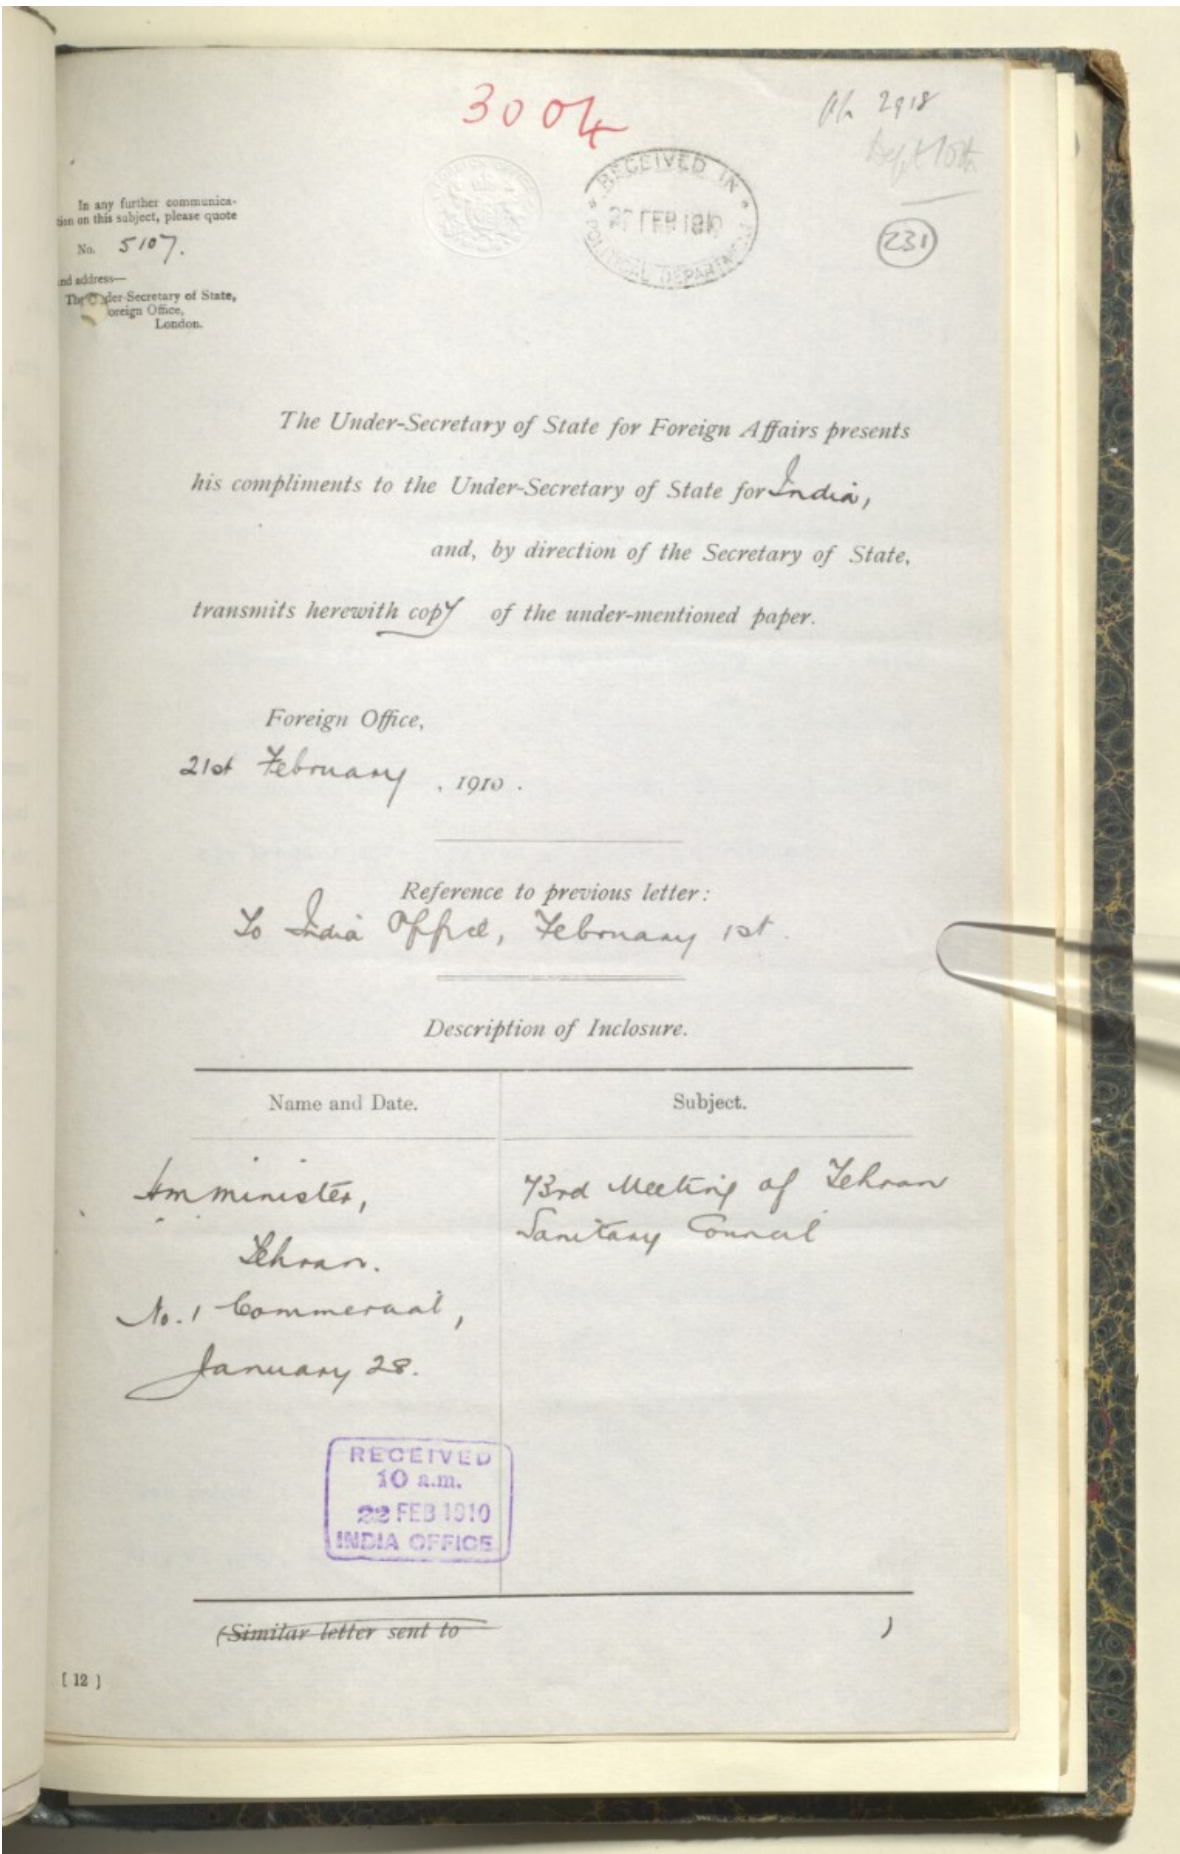 3004
2918
In any further communica-
tion on this subject, please quote
No. 5107.
nd address—
The der-Secretary of State,
oreign Office,
London.
RECEIVED IN
FEB 1910
POLITICAL DEPARTMENT
231
The Under-Secretary of State for Foreign Affairs presents
his compliments to the Under-Secretary of State for India,
and, by direction of the Secretary of State,
transmits herewith copy of the under-mentioned paper.
Foreign Office,
21st February , 1910 .
Reference to previous letter:
To India Office, February 1st.
Description of Inclosure.
Name and Date.
Subject.
Hm minister,
Tehran.
No. 1 Commercial,
January 28.
73rd Meeting of Tehran
Sanitary Council
RECEIVED
10 a.m.
22 FEB 1910
INDIA OFFICE
(Similar letter sent to )
[ 12 )